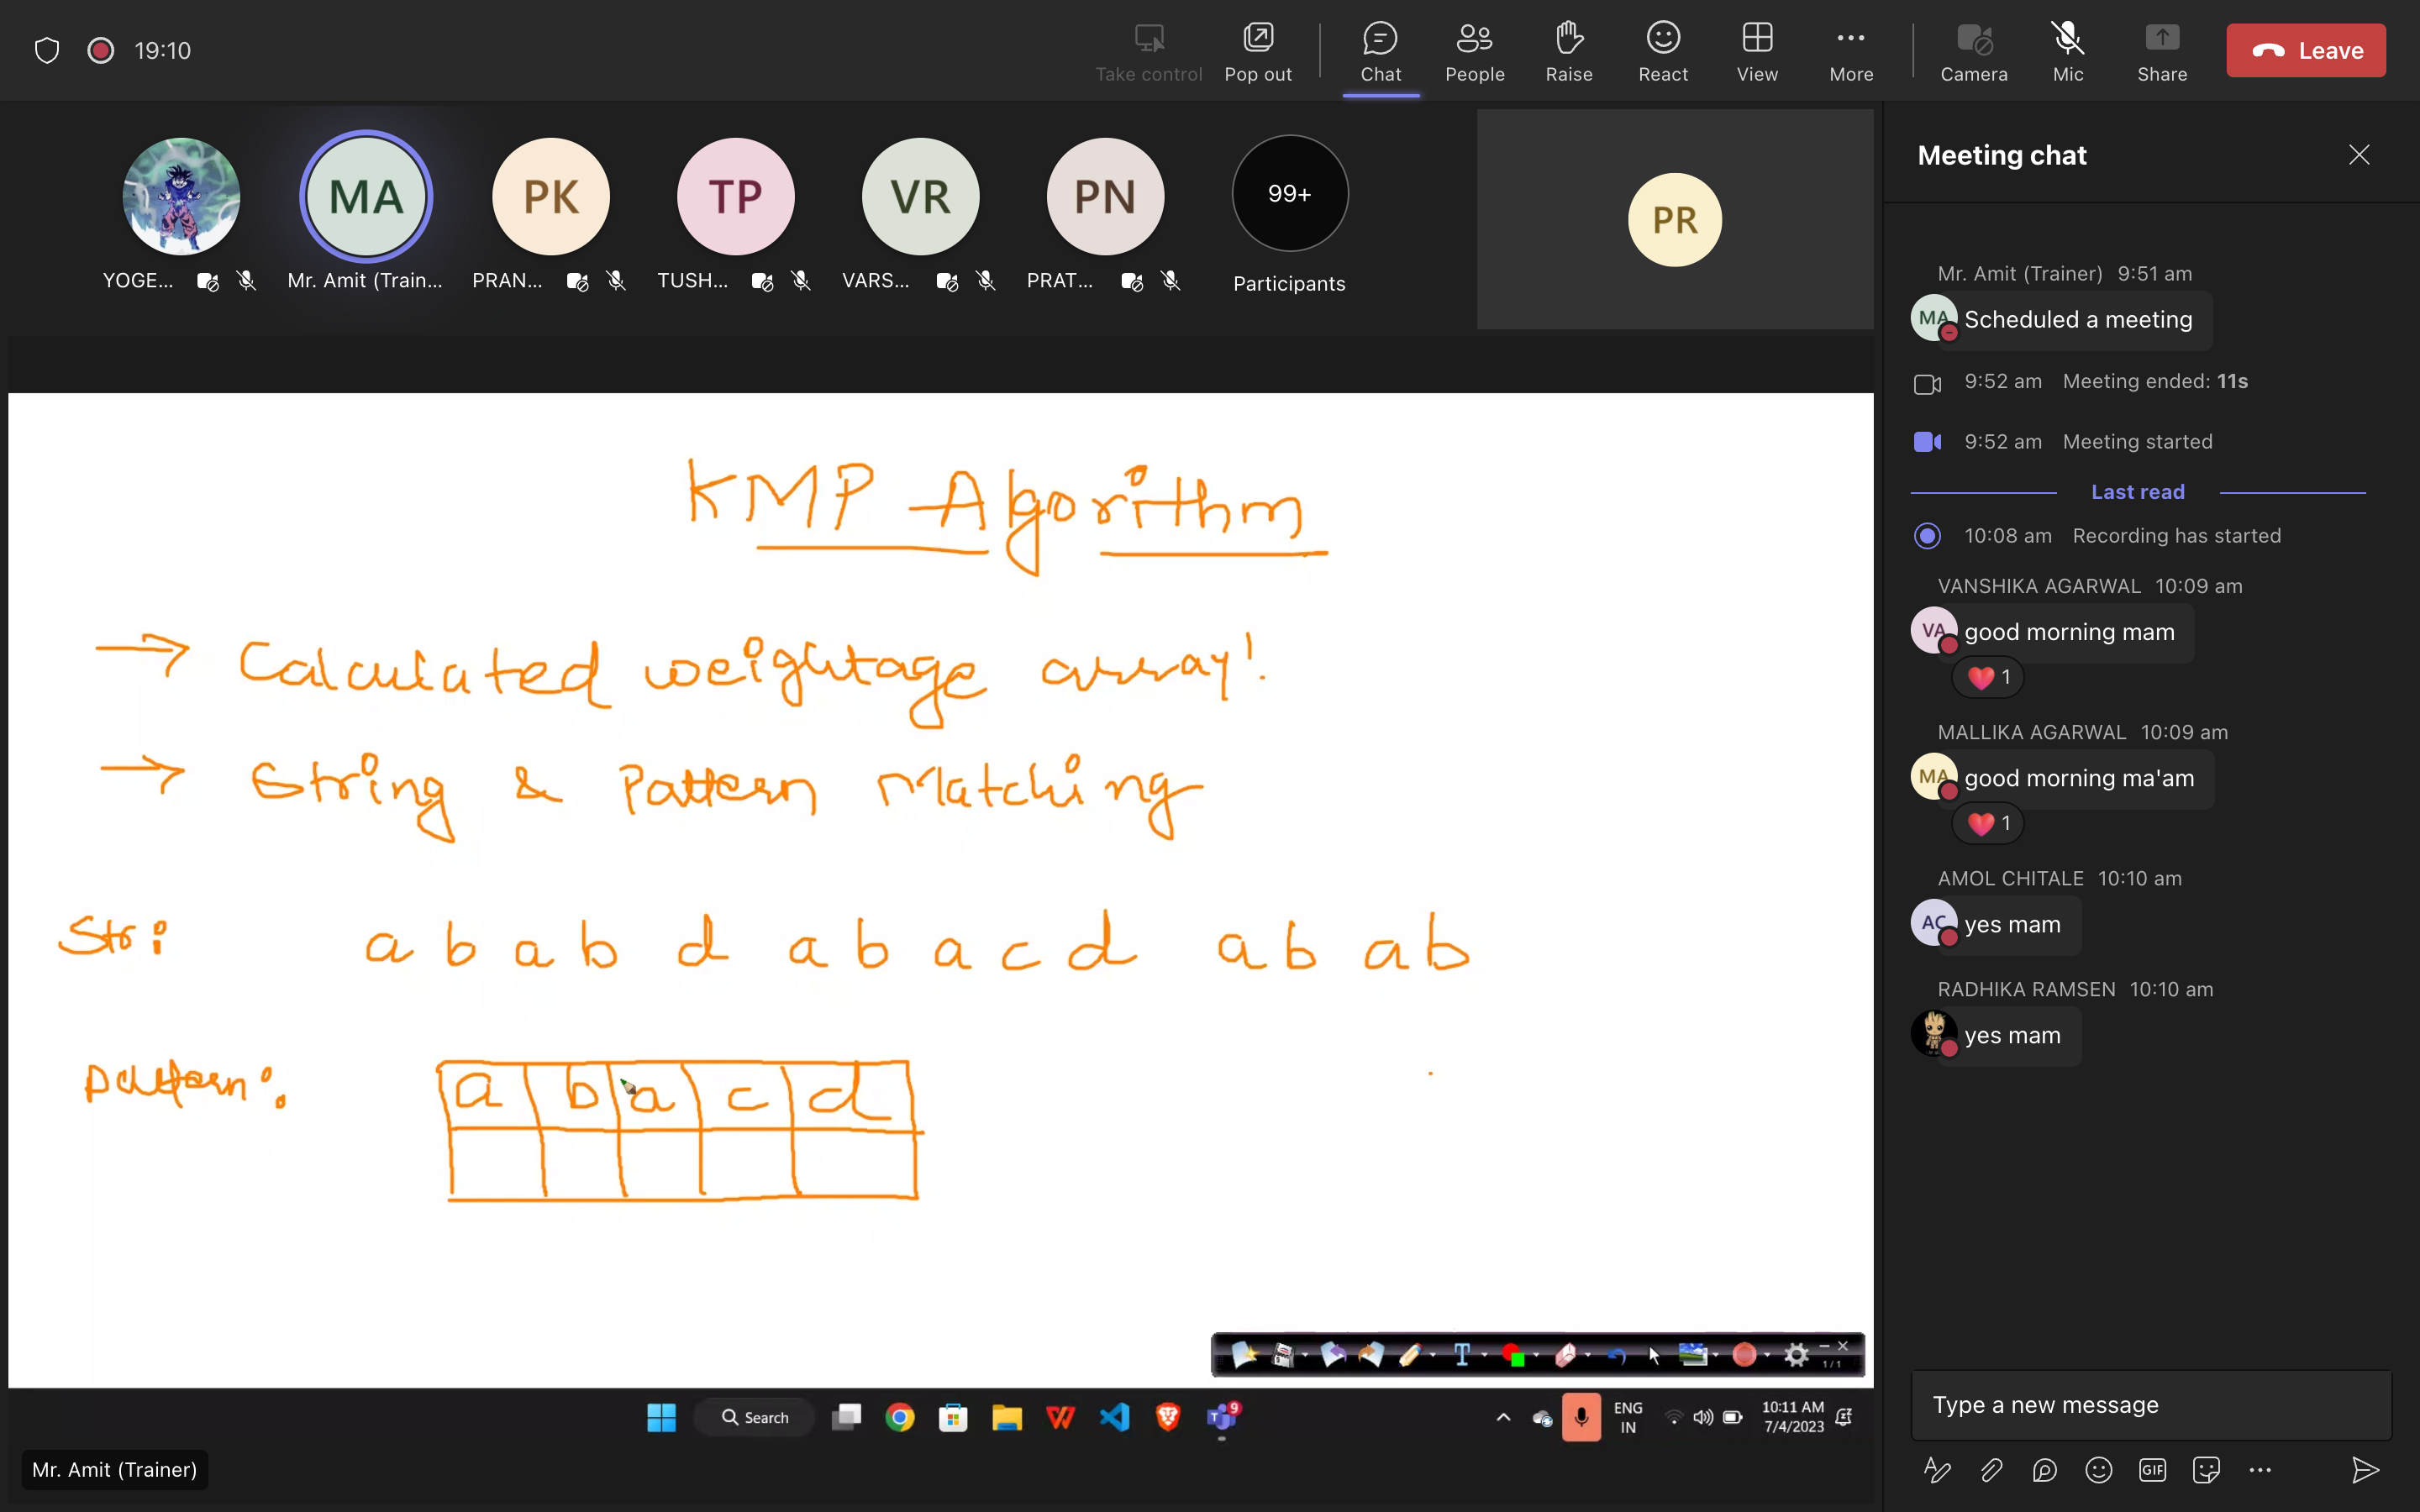 19:10
Take control
Pop out
Chat
People
Raise
React
View
More
Camera
Mic
Share
Leave
MA
PK
TP
VR
PN
99+
PR
YOGE...
Mr. Amit (Train...
PRAN...
TUSH...
VARS...
PRAT...
Participants
KMP Algorithm
→ Calculated weightage array!
→ String & Pattern Matching
Str: a b a b d a b a c d a b a b
Pattern: a b a c d
1/1
Search
9
ENG
IN
10:11 AM
7/4/2023
Mr. Amit (Trainer)
Meeting chat
Mr. Amit (Trainer) 9:51 am
MA Scheduled a meeting
9:52 am Meeting ended: 11s
9:52 am Meeting started
Last read
10:08 am Recording has started
VANSHIKA AGARWAL 10:09 am
VA good morning mam
❤️ 1
MALLIKA AGARWAL 10:09 am
MA good morning ma'am
❤️ 1
AMOL CHITALE 10:10 am
AC yes mam
RADHIKA RAMSEN 10:10 am
yes mam
Type a new message
GIF